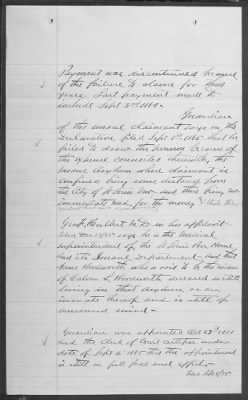 Payment was discontinued because
of the failure to claim for three
years. Last payment made to
include Sept 3rd 1880.
Guardian
of the insane claimant says in the
declaration filed Sept 1885 that he
failed to draw the pension because of
the expense connected therewith, the
Insane Asylum where claimant is
confined being some distance from
the City of St Louis and there being no
immediate need for the money
Geo. Hulbert M.D. in his affidavit
says he is the Medical
Superintendent of the St Louis Poor House
and its Insane Department and that
Anne Woodworth who is said to be the widow
of Calvin Woodworth deceased is still
living in that asylum as an
inmate thereof and is still of
unsound mind.
Guardian was appointed
and the clerk of Court certifies under
date of Sept 2 1885 that the appointment
is still in full force and effect.